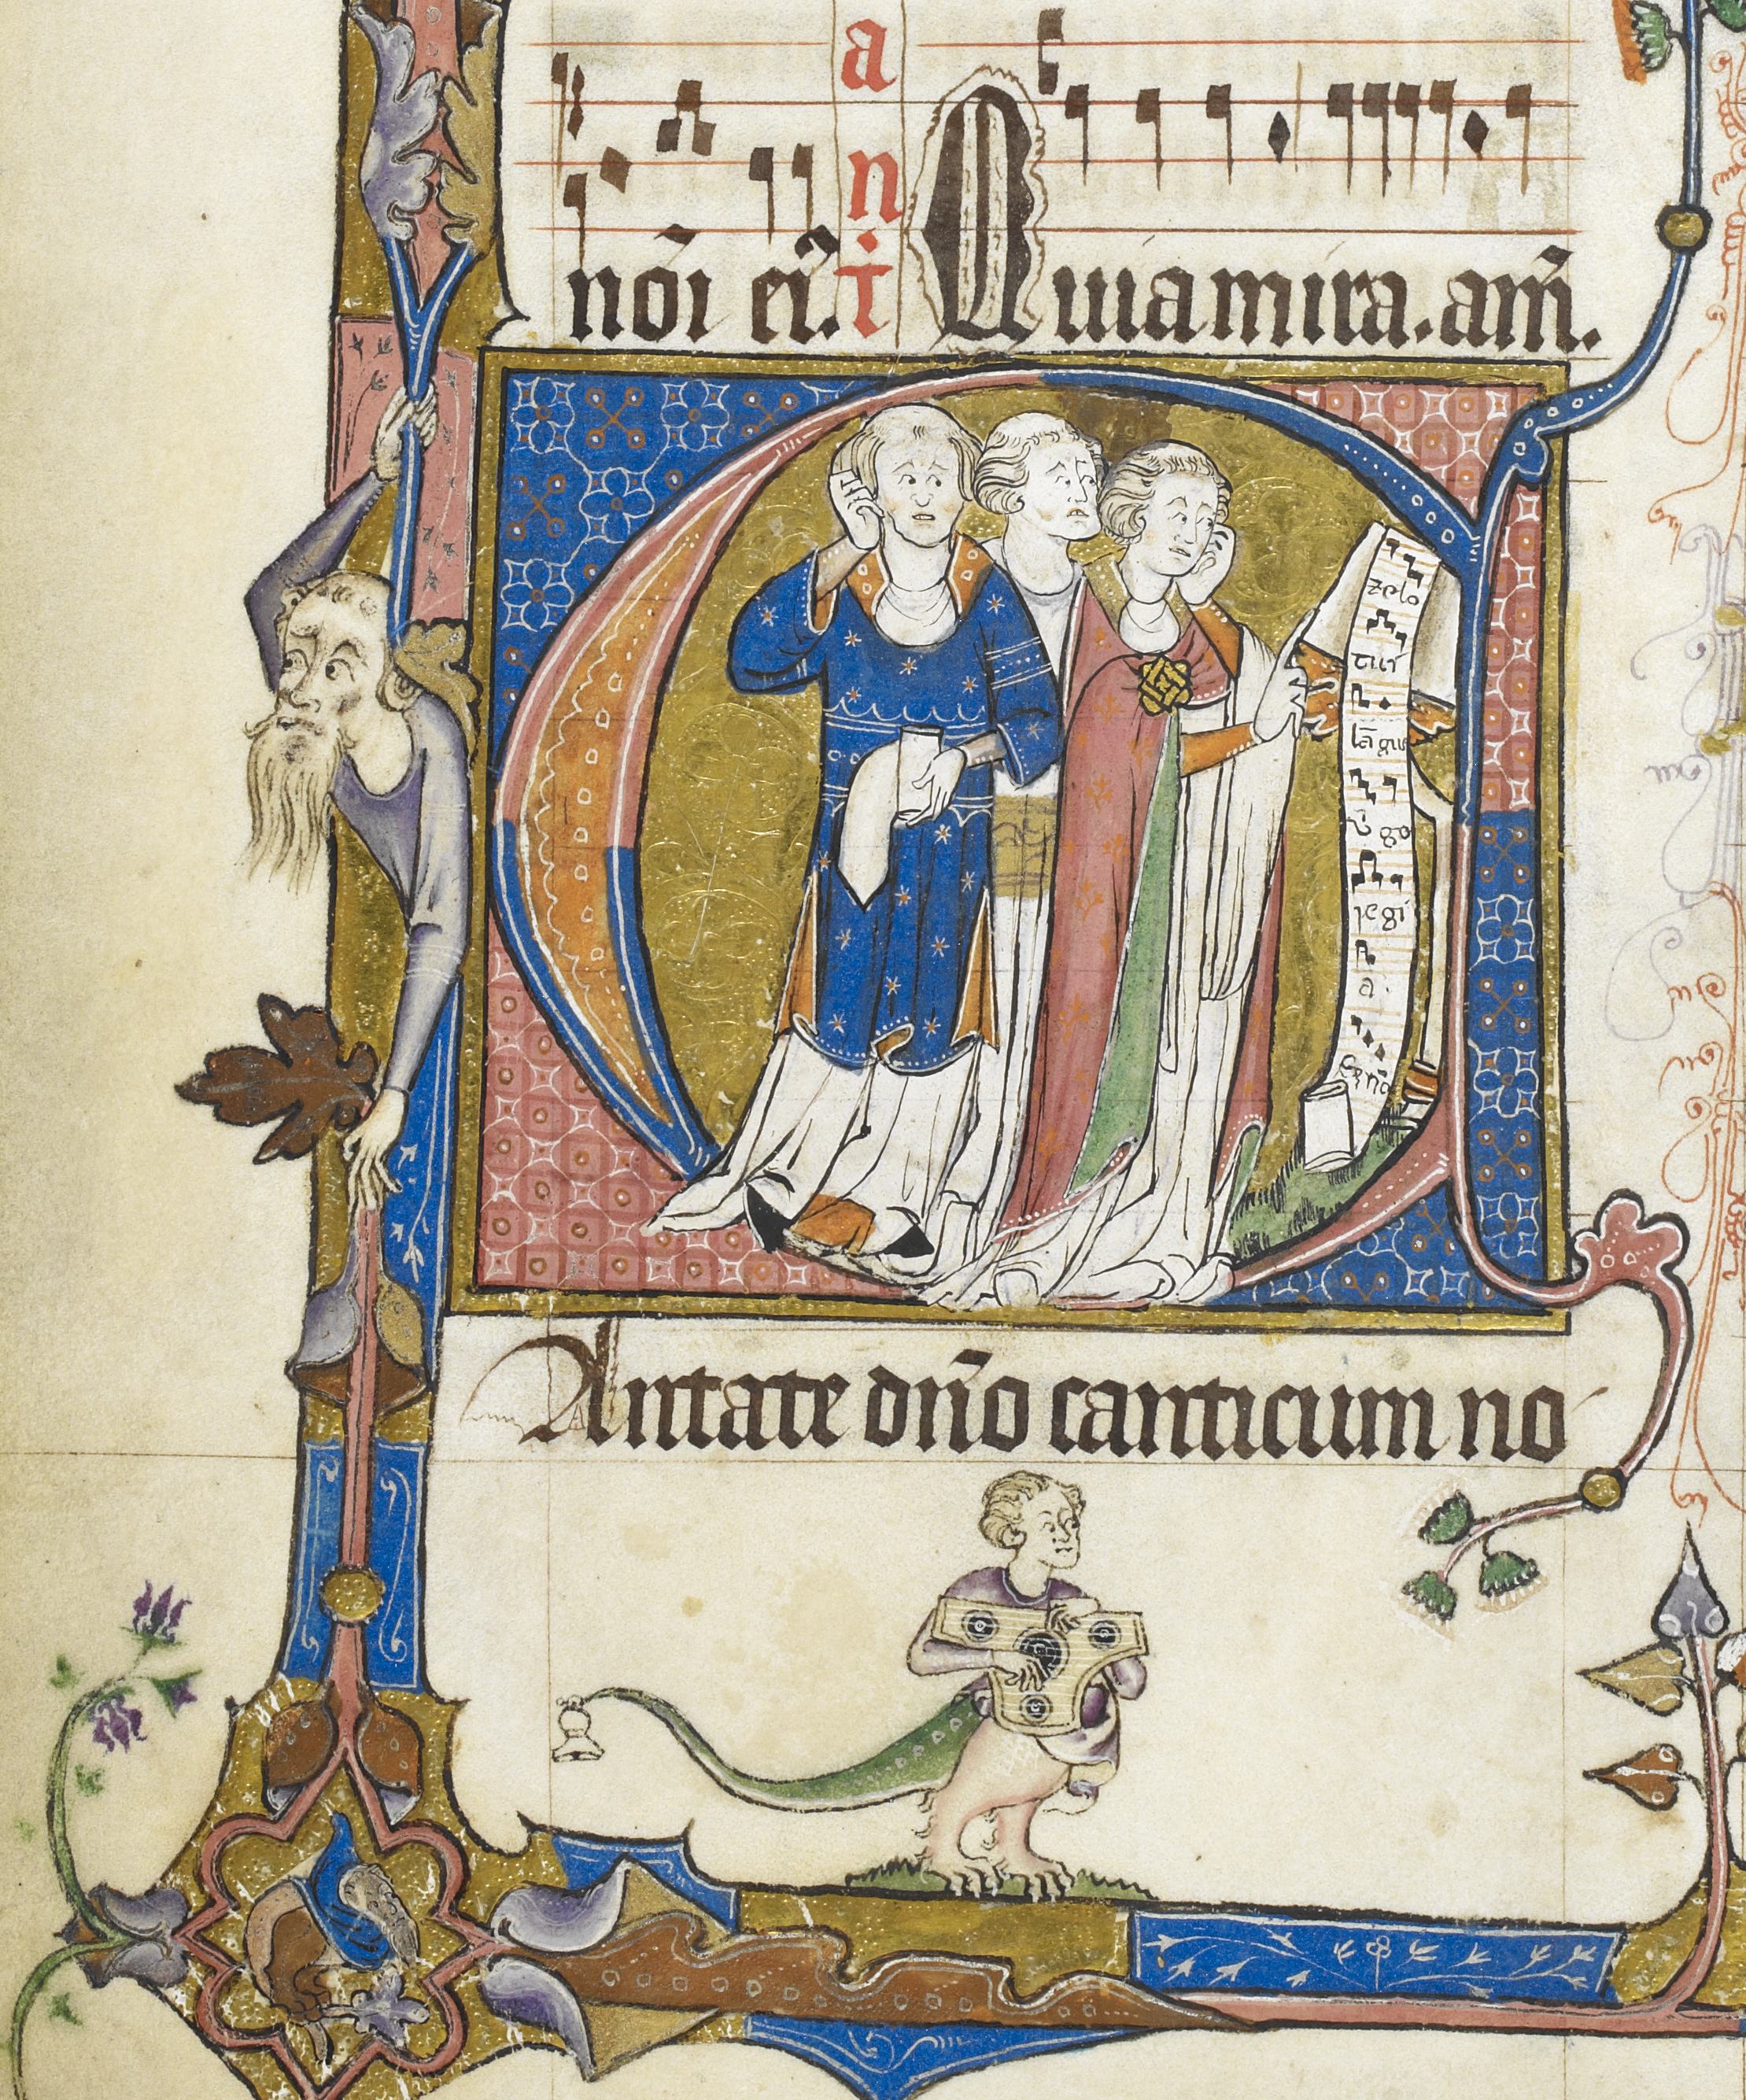 a
n
nōi eiꝰ. i Quia mira. am̄.
zelo
tui
lāgu
v̄go
regi
a.
C
Antate dn̄o canticum no